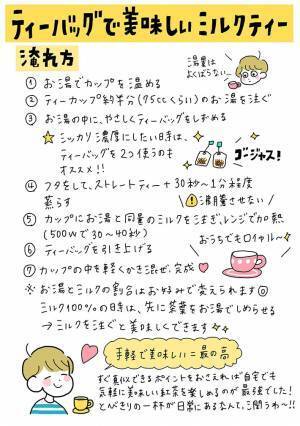 ティーバッグで美味しいミルクティー
淹れ方
湯量は
よくばらない…
① お湯でカップを温める
② ティーカップ約半分(75ccくらい)のお湯を注ぐ
③ お湯の中に、やさしくティーバッグをしずめる
★ シッカリ濃度にしたい日時は、
ティーバッグを2つ使うのも
オススメ!!
ゴージャス!
④ フタをして、ストレートティー+30秒〜1分程度
蒸らす
沸騰させない
⑤ カップにお湯と同量のミルクを注ぎ、レンジで加熱
(500Wで30〜40秒)
おうちでもロイヤル〜
⑥ ティーバッグを引き上げる
⑦ カップの中を軽くかき混ぜ、完成
※ お湯とミルクの割合はお好みで変えられます◎
ミルク100%の日時は、先に茶葉をお湯でしめらせる
→ ミルクを注ぐと美味しくできます
手軽で美味しい=最の高
すぐ真似できるポイントをおさえれば自宅でも
気軽に美味しい紅茶を楽しめるのが最強でした!
とびきりの一杯が日常にあるなんて、こ潤うわ〜!!